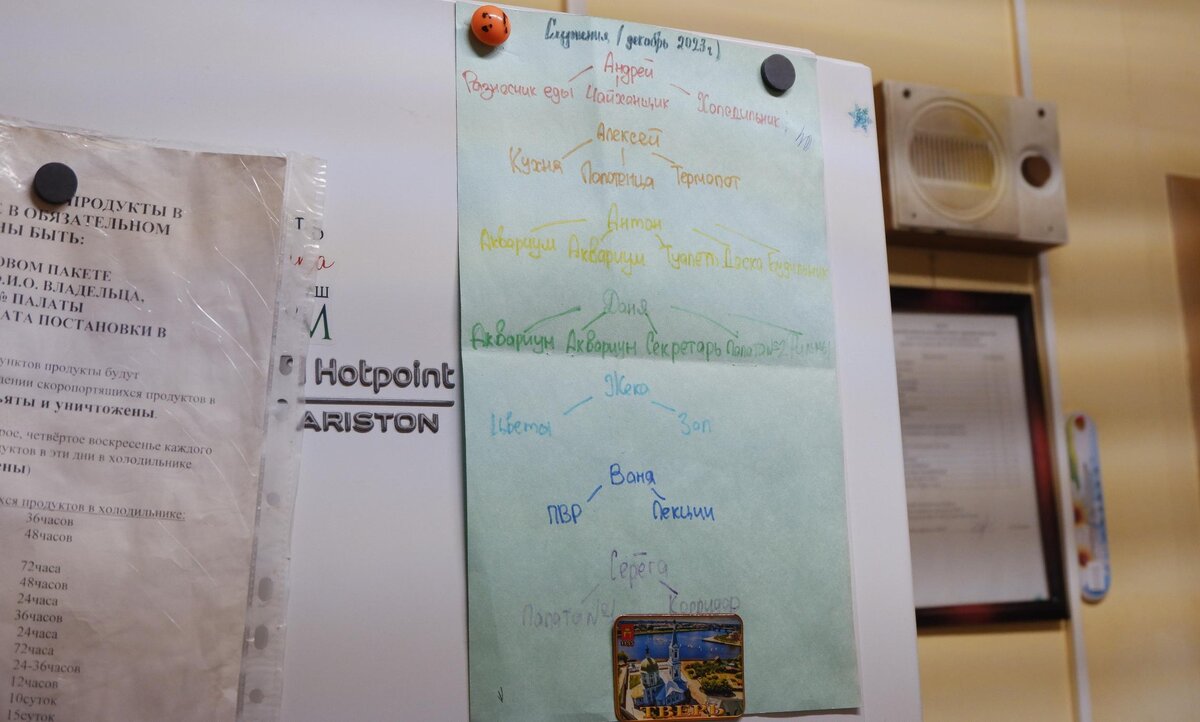 ПРОДУКТЫ В
В ОБЯЗАТЕЛЬНОМ
НЫ БЫТЬ:
ОВОМ ПАКЕТЕ
Ф.И.О. ВЛАДЕЛЬЦА,
№ ПАЛАТЫ
ДАТА ПОСТАНОВКИ В
унктов продукты будут
дении скоропортящихся продуктов в
ъяты и уничтожены.
рое, четвёртое воскресенье каждого
дуктов в эти дни в холодильнике
ены)
хся продуктов в холодильнике:
36часов
48часов
72часа
48часов
24часа
36часов
24часа
72часа
24-36часов
12часов
10суток
15суток
Hotpoint
ARISTON
Служения (декабрь 2023г)
Андрей
Разносчик еды Чайханщик Холодильник
Алексей
Кухня Полотенца Термопот
Антон
Аквариум Аквариум Туалет Доска Будильник
Даня
Аквариум Аквариум Секретарь Палата №2
Жека
Цветы Зал
Ваня
ПВР Лекции
Серёга
Палата №1 Корридор
ТВЕРЬ